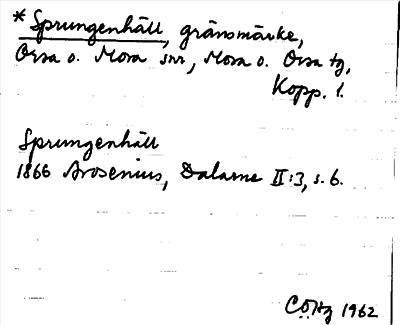 * Sprungenhäll, gränsmärke,
Orsa o. Mora snr, Mora o. Orsa tg,
Kopp. l.
Sprungenhäll
1866 Arosenius, Dalarne II:3, s. 6.
CÖHg 1962